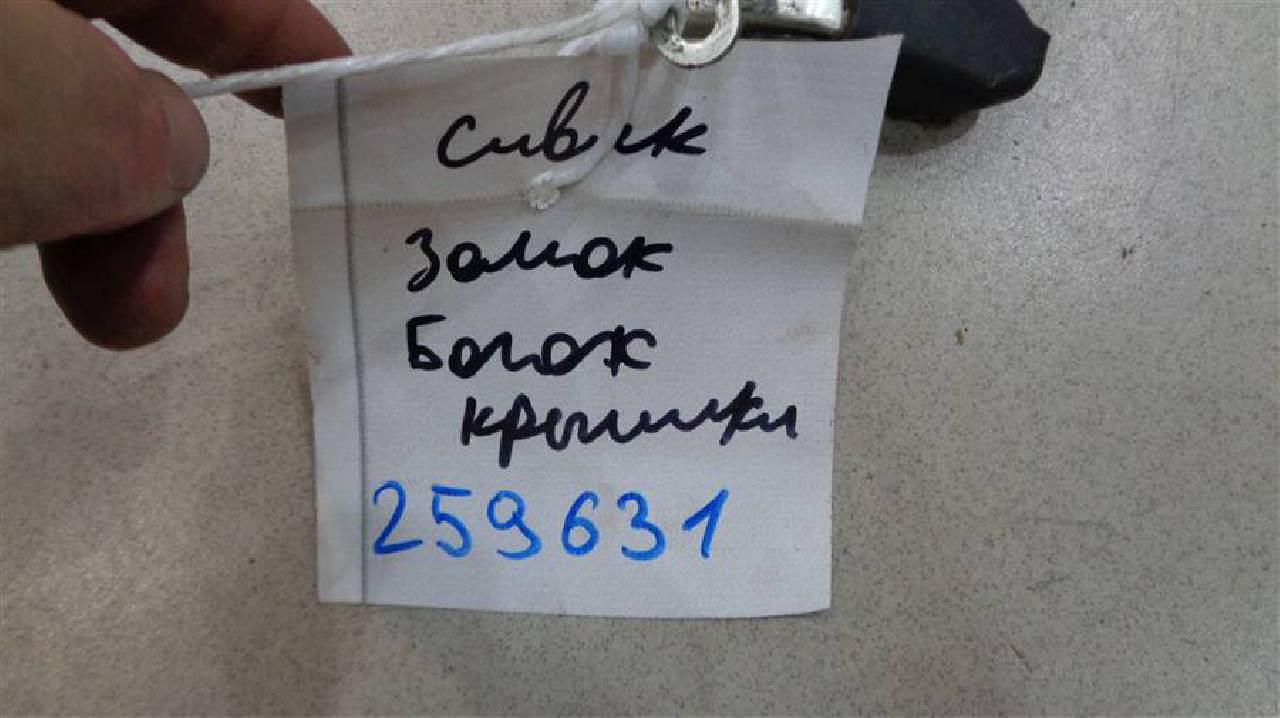 Сивик
Замок
Багаж
крышки
259631